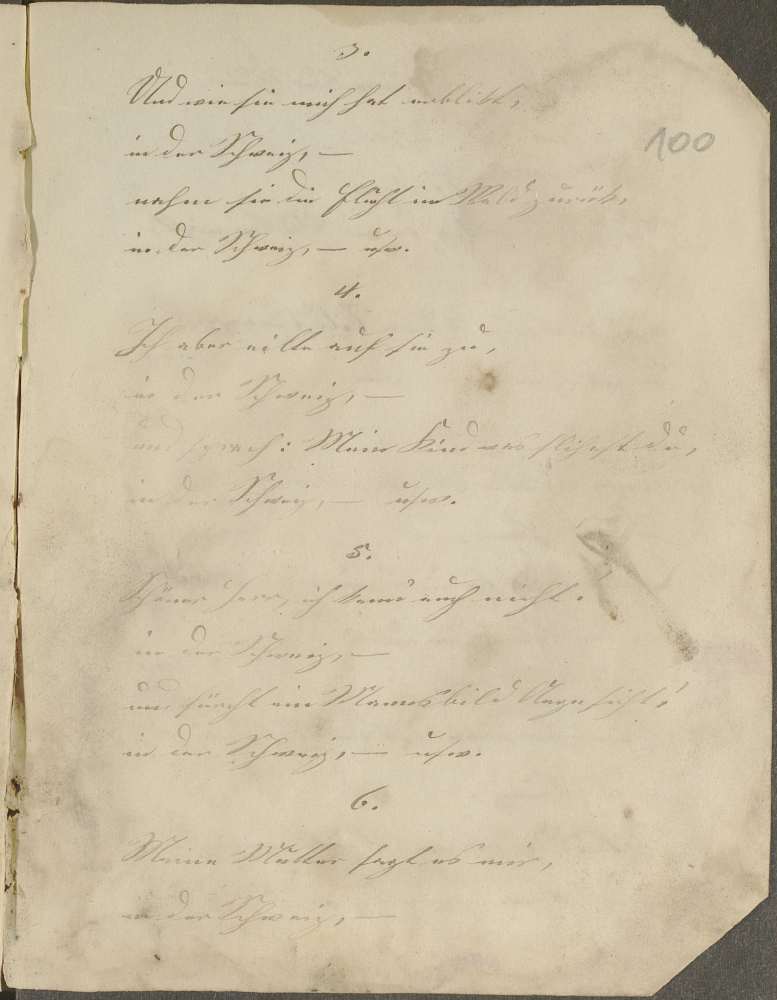 3.
Und wie sie mich hat erblikt,
100
in der Schweiz, —
nahm sie die Flucht im Wald zurük,
in der Schweiz, — usw.
4.
Ich aber eilte auf sie zu,
in der Schweiz, —
und sprach: Mein Kind was fliehest du,
in der Schweiz, — usw.
5.
Schöner Herr, ich kenn euch nicht.
in der Schweiz, —
und fürcht ein Mannsbild Angesicht!
in der Schweiz, — usw.
6.
Meine Mutter sagt es mir,
in der Schweiz, —